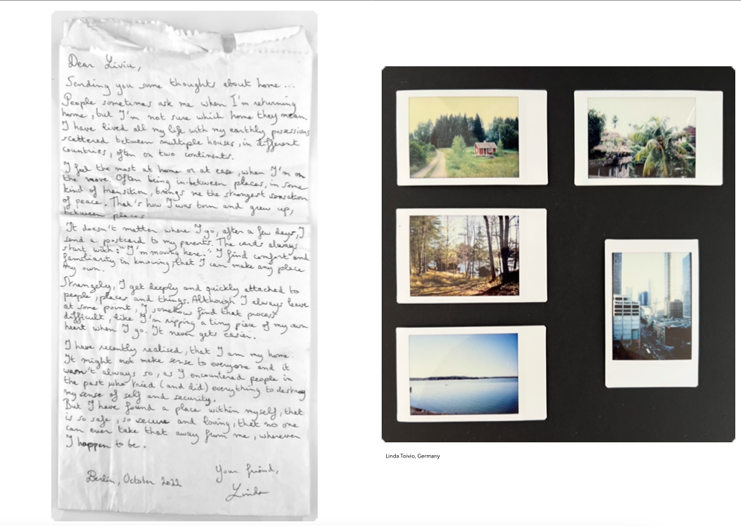 Dear Livia,
Sending you some thoughts about home ...
People sometimes ask me when I'm returning
home, but I'm not sure which home they mean.
I have lived all my life with my earthly possessions
scattered between multiple houses, in different
countries, often on two continents.
I feel the most at home or at ease, when I'm on
the move. Often being in-between places, in some
kind of transition, brings me the strongest sensation
of peace. That's how I was born and grew up,
between places.
It doesn't matter where I go, after a few days, I
send a postcard to my parents. The cards always
start with: "I'm moving here." I find comfort and
familiarity in knowing, that I can make any place
my own.
Strangely, I get deeply and quickly attached to
people, places and things. Although I always leave
at some point, I somehow find that process
difficult, like I'm ripping a tiny piece of my own
heart when I go. It never gets easier.
I have recently realised, that I am my home.
It might not make sense to everyone and it
wasn't always so, as I encountered people in
the past who tried (and did) everything to destroy
my sense of self and security.
But I have found a place within myself, that
is so safe, so secure and loving, that no one
can ever take that away from me, wherever
I happen to be.
Your friend,
Berlin, October 2022
Linda
Linda Toivio, Germany